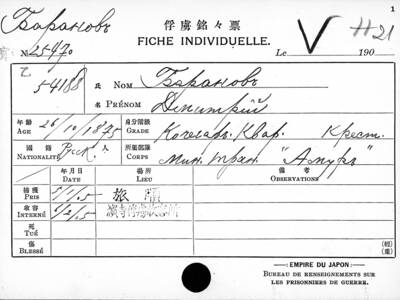 Барановъ
俘虜銘々票
1
FICHE INDIVIDUELLE.
V
H21
№ 25470
Le
190
乙
54188
氏 NOM
Барановъ
名 PRÉNOM
Димитрій
年齡 AGE
26/10/1875
身分階級 GRADE
Кочегаръ. Квар. Крест.
國籍 NATIONALITÉ
Русск.
所屬部隊 CORPS
Мин. тран. "Амуръ"
年月日 DATE
場所 LIEU
備考 OBSERVATIONS
捕獲 PRIS
5/1/.5
旅順
收容 INTERNÉ
死 TUÉ
傷 BLESSÉ
EMPIRE DU JAPON:
BUREAU DE RENSEIGNEMENTS SUR
LES PRISONNIERS DE GUERRE.